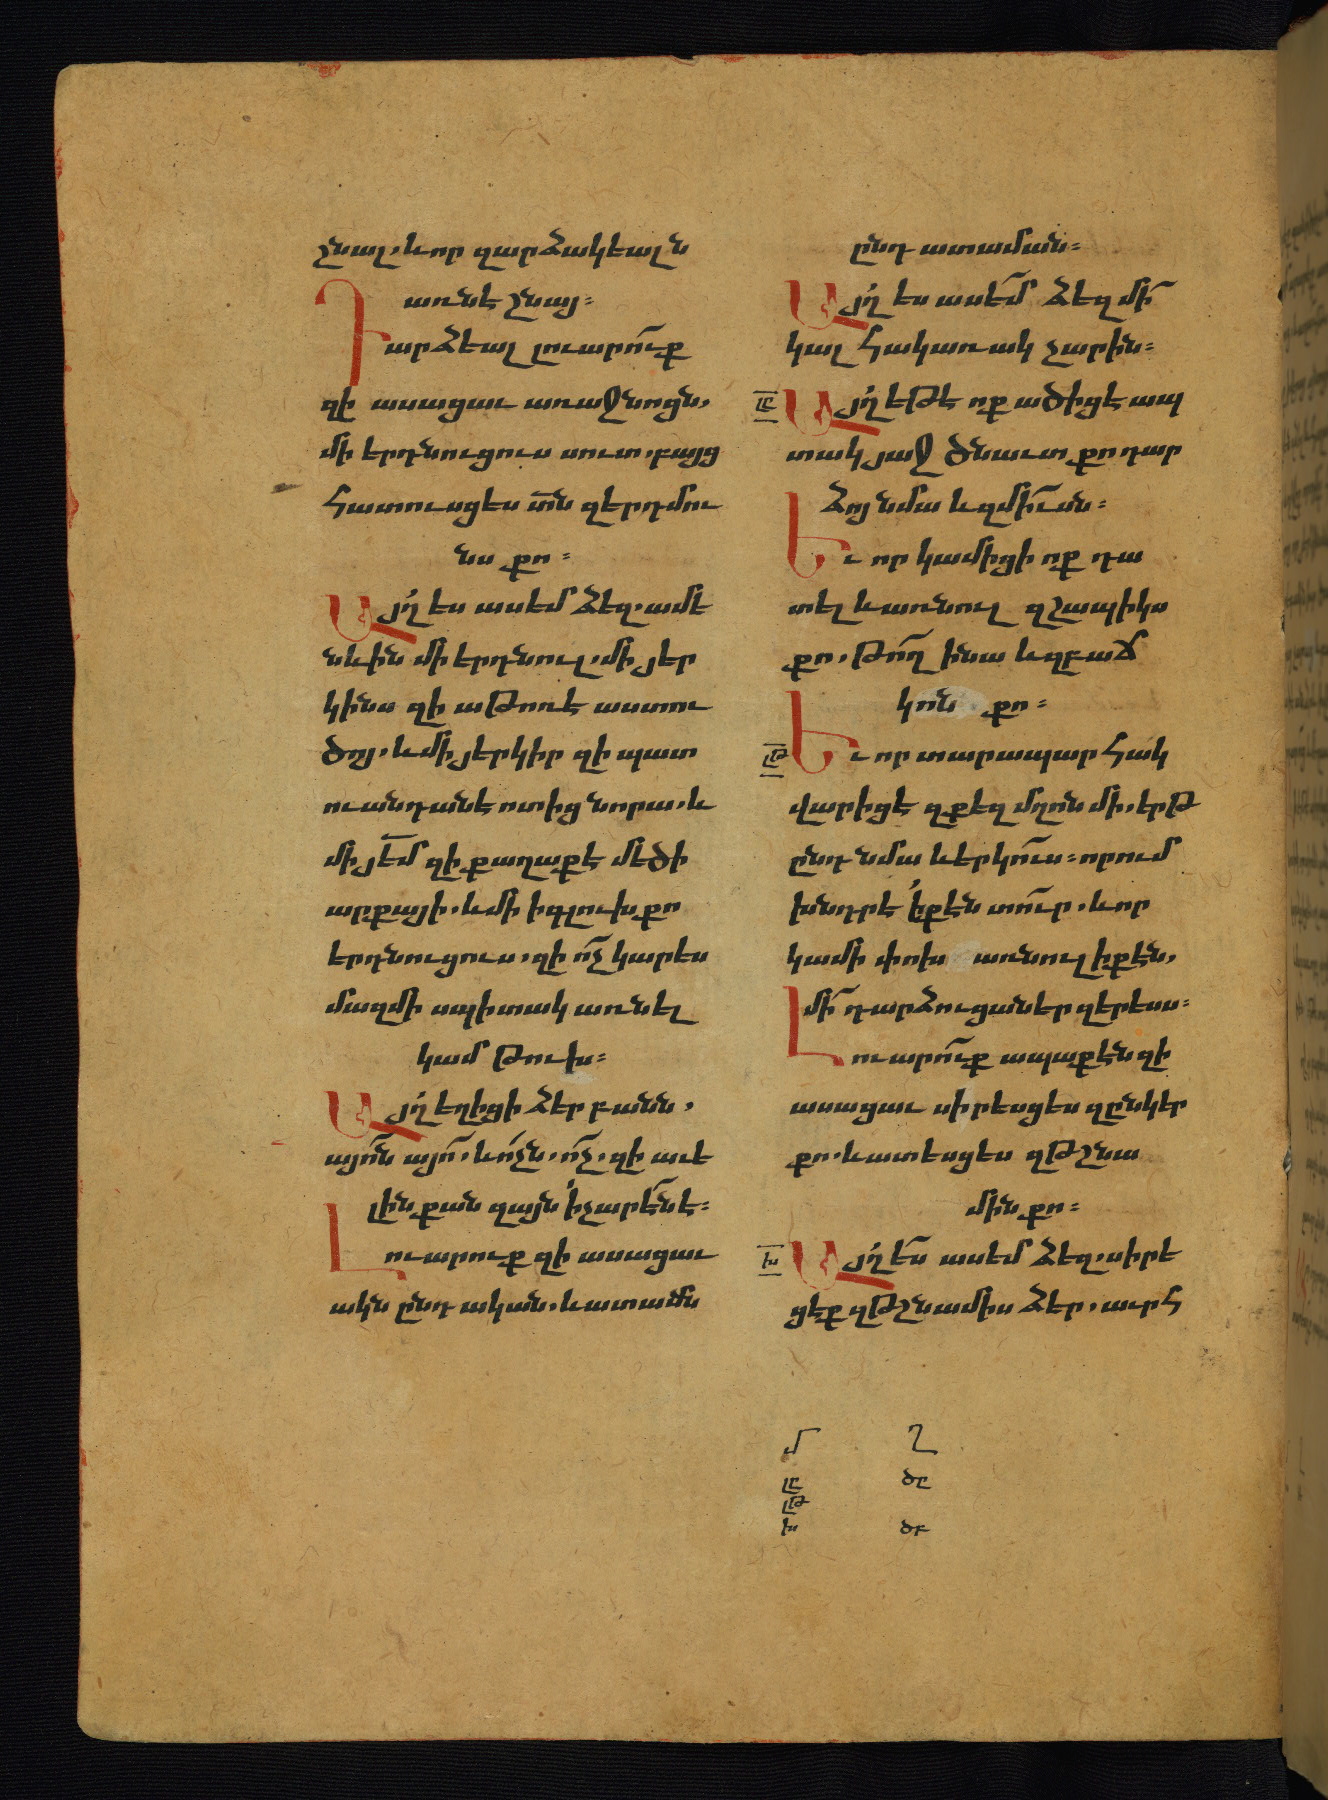 շնայ. և որ զարձակեալն
առնէ շնայ։
Դարձեալ լուարո՛ւք
զի ասացաւ առաջնոցն,
մի երդնուցուս սուտ. բայց
հատուսցես տն զերդմու
նս քո։
Այղ ես ասեմ ձեզ. ամե
նևին մի երդնուլ. մի յեր
կինս զի աթոռ է աստու
ծոյ. և մի յերկիր զի պատ
ուանդան է ոտից նորա. և
մի յեմ զի քաղաք է մեծի
արքայի. և մի ի գլուխ քո
երդնուցուս, զի ոչ կարես
մազ մի սպիտակ առնել
կամ թուխ։
Այղ եղիցի ձեր բանն,
այոն այո՛. և ոչն. ոչ. զի աւե
լին քան զայն ի չարէն է։
Լուարուք զի ասացաւ
ակն ընդ ական. և ատամն
ընդ ատաման։
Այղ ես ասեմ ձեզ մի՛
կալ հակառակ չարին։
ԼԸ Այղ եթէ ոք ածիցէ ապ
տակ յաջ ծնաւտ քո դար
ձոյ նմա և զմիւսն։
Եւ որ կամիցի ոք դա
տել և առնուլ զշապիկս
քո. թո՛ղ ի նա և զբաճ
կոն քո։
ԼԹ Եւ որ տարապարհակ
վարիցէ զքեզ մղոն մի. երթ
ընդ նմա և երկո՛ւս։ որում
խնդրէ ի քէն տո՛ւր. և որ
կամի փոխ առնուլ ի քէն,
մի՛ դարձուցաներ զերեսս։
Լուարո՛ւք ապաքէն զի
ասացաւ սիրեսցես զընկեր
քո. և ատեսցես զթշնա
մին քո։
Խ Այղ ես ասեմ ձեզ. սիրե
ցէք զթշնամիս ձեր. աւրհ
Մ Ղ
ԼԸ ԾԸ
ԼԹ
Խ ԾԲ